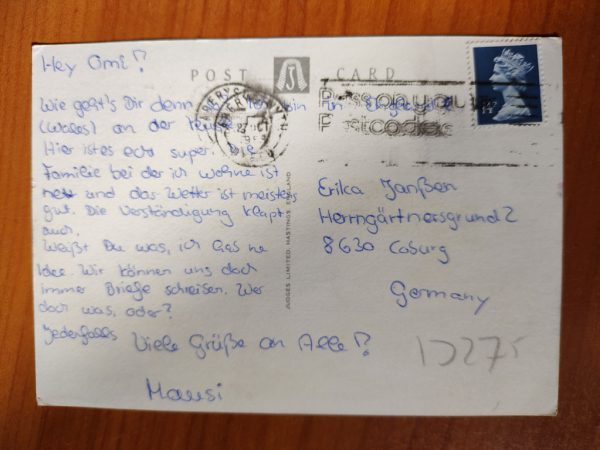 Hey Omi!
POST CARD
ABERYSTWYTH
Pass on your
Postcode
Wie geht's Dir denn so? Ich bin in England
(Wales) an der Küste.
Hier ist es echt super. Die
Familie bei der ich wohne ist
nett und das Wetter ist meistens
gut. Die Verständigung klapt
auch.
Weißt Du was, ich hab ne
Idee. Wir können uns doch
immer Briefe schreiben. Wer
doch was, oder?
Jedenfalls Viele Grüße an Alle!
Mausi
JUDGES LIMITED, HASTINGS, ENGLAND
Erika Janßen
Herrngärtnersgrund 2
8630 Coburg
Germany